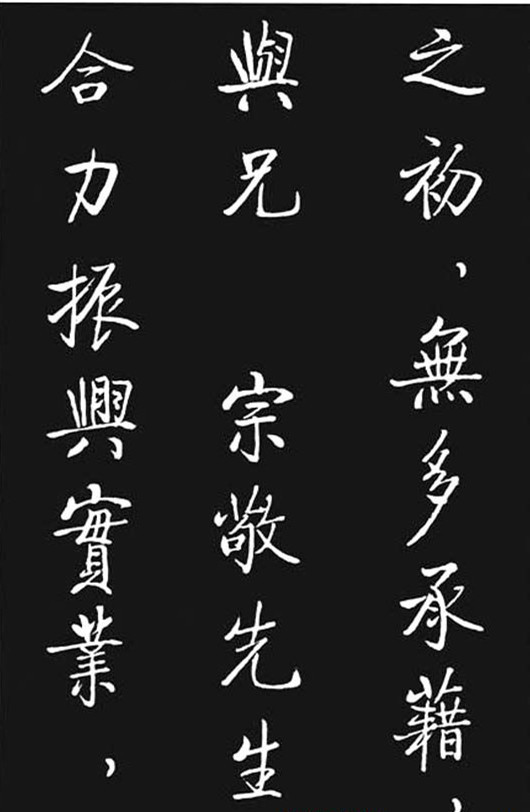 之初，無多承藉，
與兄　宗敬先生
合力振興實業，